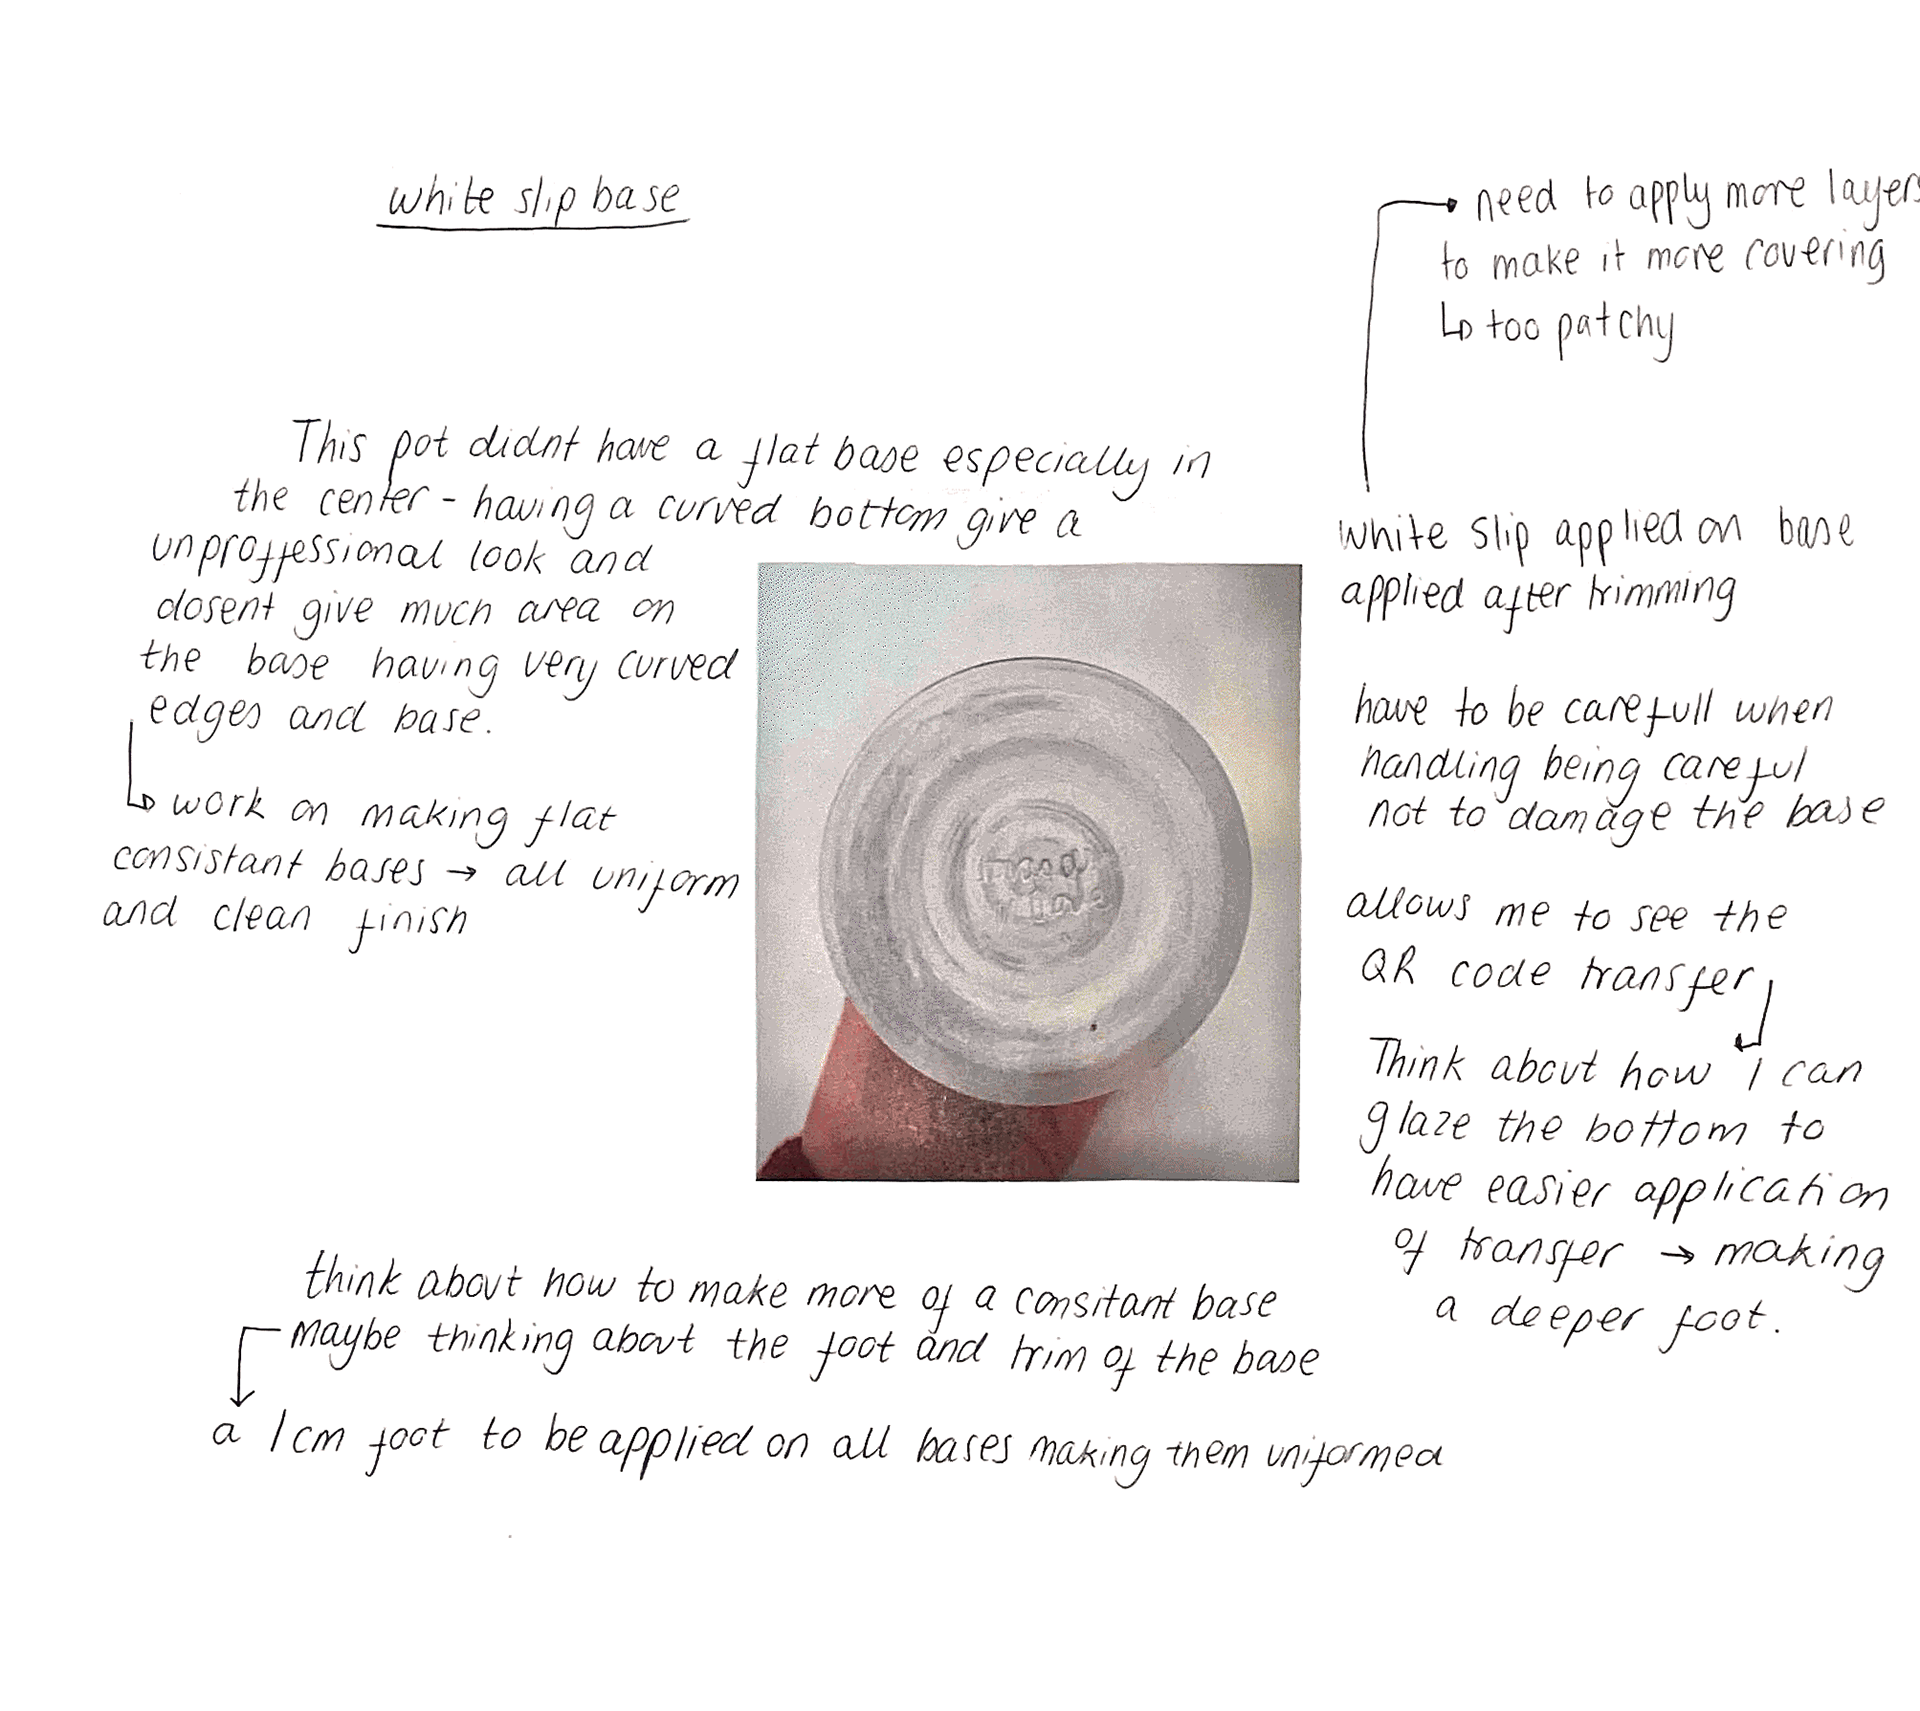 white slip base
need to apply more layers
to make it more covering
↳ too patchy
This pot didnt have a flat base especially in
the center - having a curved bottom give a
unproffessional look and
dosent give much area on
the base having very curved
edges and base.
↳ work on making flat
consistant bases → all uniform
and clean finish
white slip applied on base
applied after trimming
have to be carefull when
handling being careful
not to damage the base
allows me to see the
QR code transfer
Think about how I can
glaze the bottom to
have easier application
of transfer → making
a deeper foot.
think about how to make more of a consitant base
maybe thinking about the foot and trim of the base
a 1cm foot to be applied on all bases making them uniformed